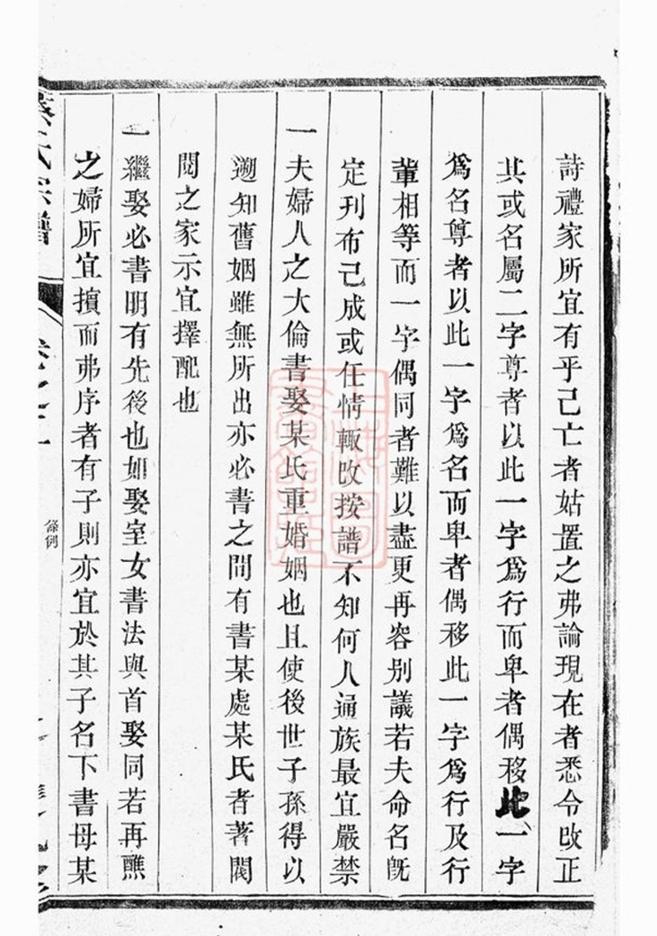 詩禮家所宜有乎已亡者姑置之弗論現在者悉令改正
其或名屬二字尊者以此一字爲行而卑者偶移此一字
爲名尊者以此一字爲名而卑者偶移此一字爲行及行
輩相等而一字偶同者難以盡更再容別議若夫命名旣
定刊布已成或任情輙改按譜不知何人通族最宜嚴禁
一夫婦人之大倫書娶某氏重婚姻也且使後世子孫得以
遡知舊姻雖無所出亦必書之間有書某處某氏者著閥
閱之家示宜擇配也
一繼娶必書明有先後也如娶室女書法與首娶同若再醮
之婦所宜擯而弗序者有子則亦宜於其子名下書母某
氏宗譜
條例